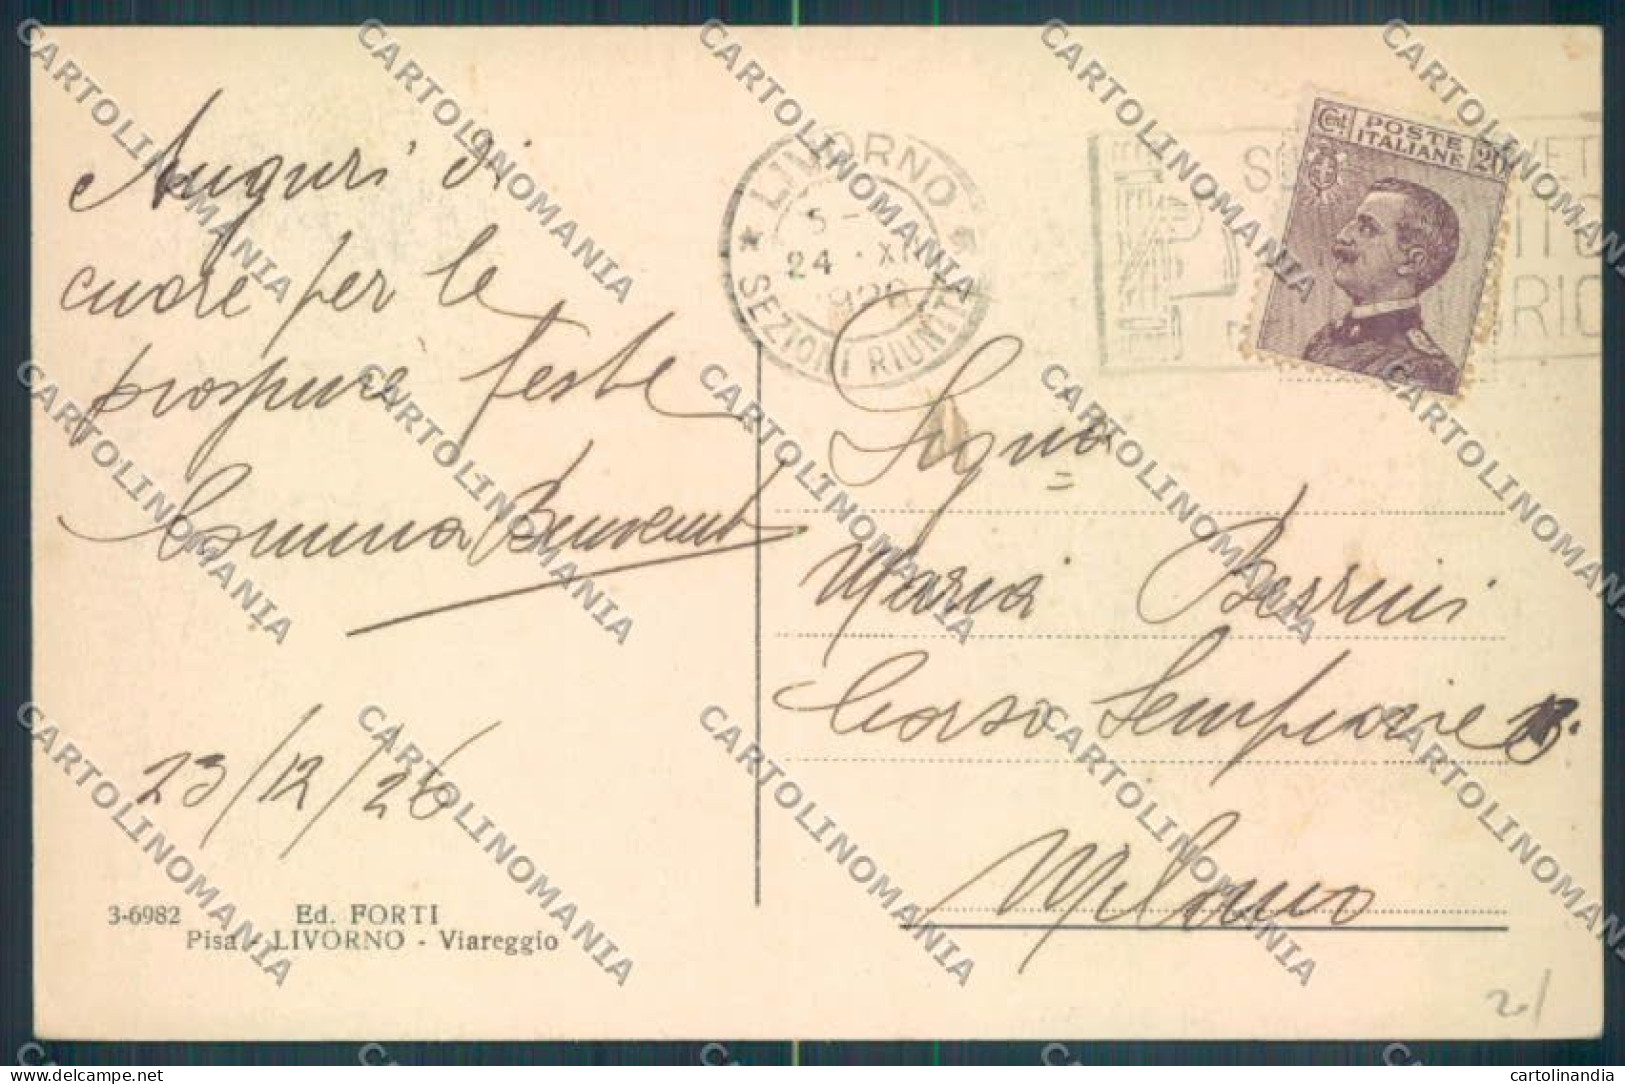 Auguri di
cuore per le
prospere feste
Benvenuti
23/12/26
3-6982
Ed. FORTI
Pisa - LIVORNO - Viareggio
LIVORNO
24 · XII
SEZIONI RIUNITE
Cent.
POSTE
ITALIANE
20
Sigra
Maria Berrini
Corso Sempione
Milano
CARTOLINOMANIA
cartolinandia
delcampe.net